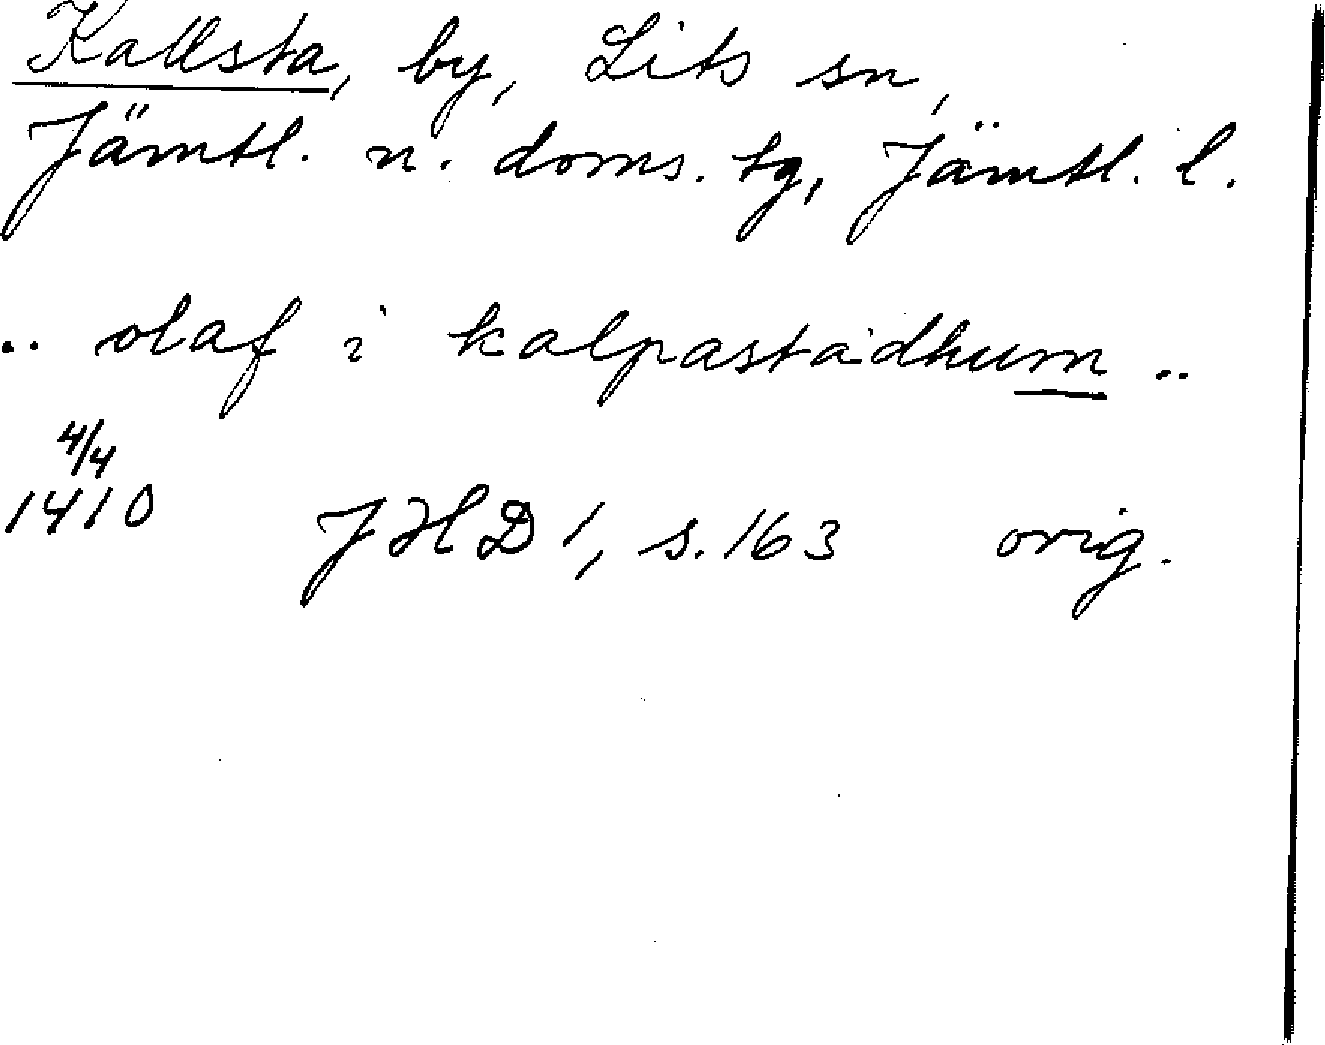 Kallsta, by, Lits sn,
Jämtl. n. doms. tg, Jämtl. l.
.. olaf i kalpastadhum ..
4/4
1410 JHD 1, s. 163 orig.